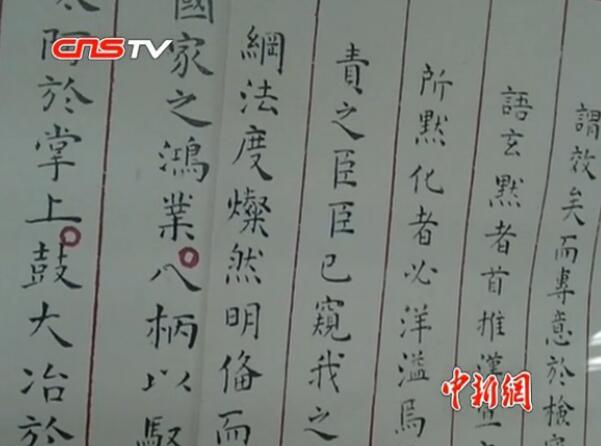 CNSTV
謂效矣而專意於檢
語玄默者首推漢
所默化者必洋溢焉
責之臣臣已窺我之
綱法度燦然明俻而
國家之鴻業八柄以
阿於掌上鼓大冶於
中新網